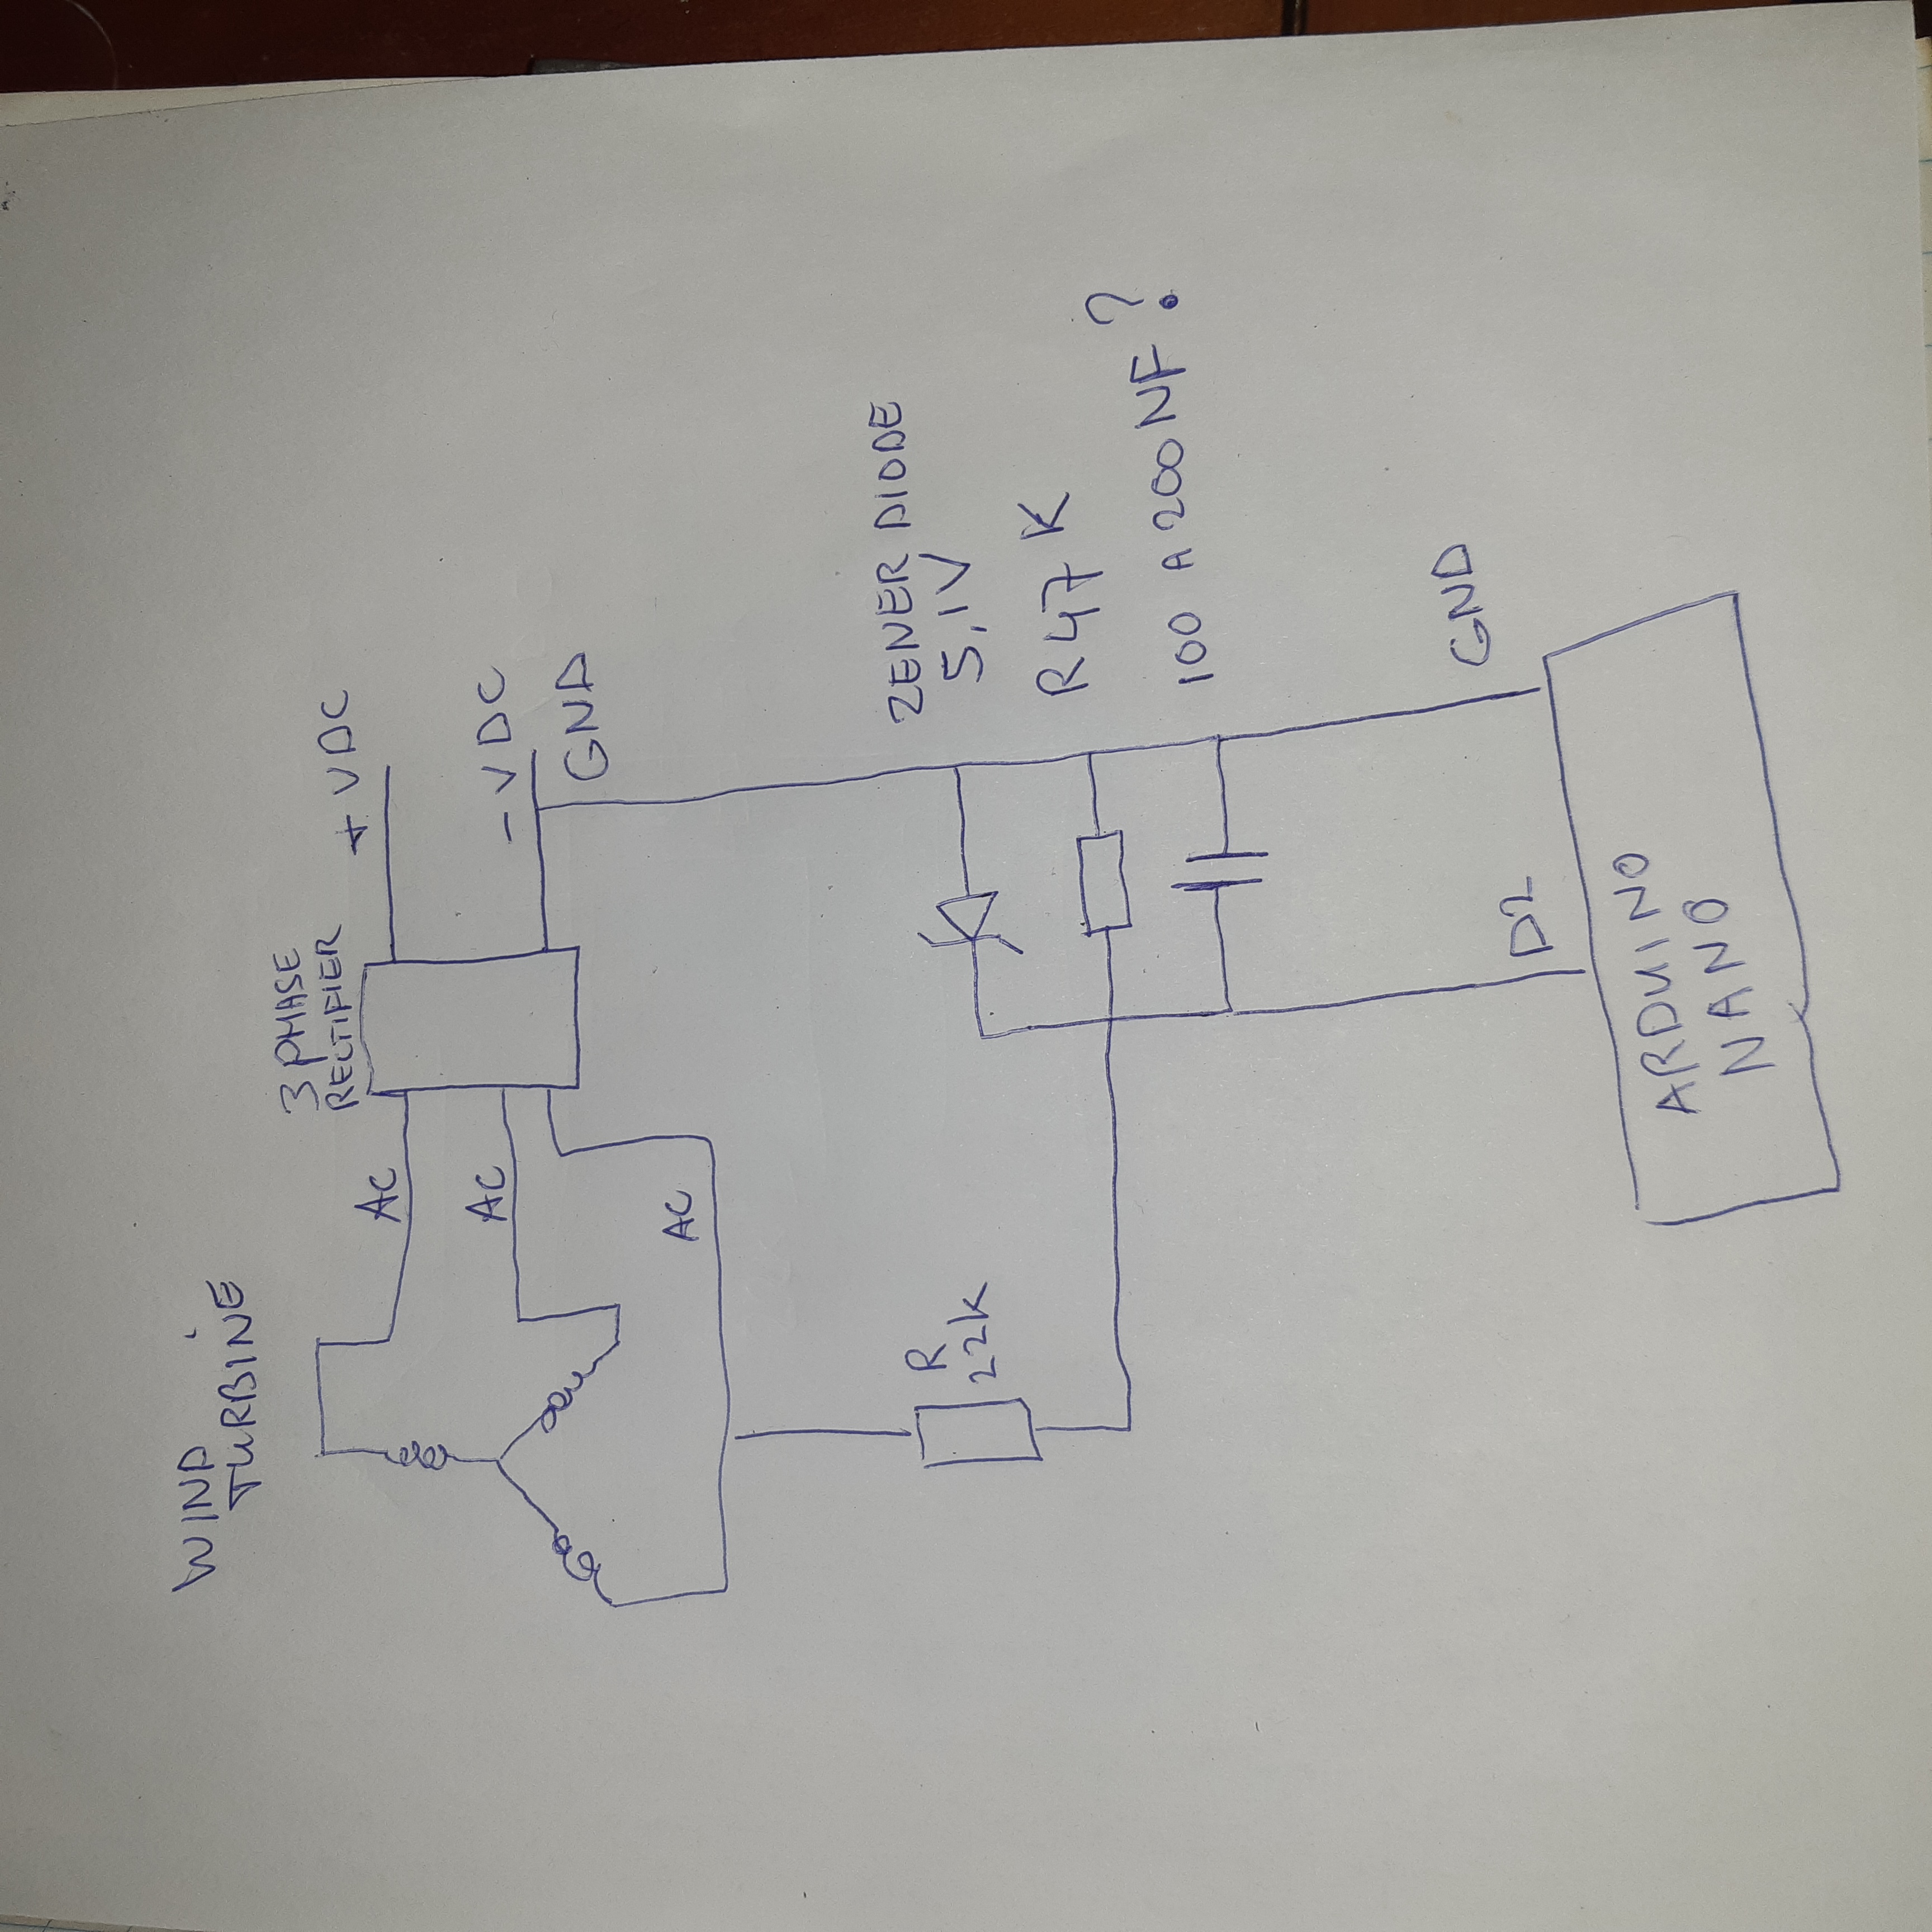 WIND
TURBINE
3 PHASE
RECTIFIER
AC
+ VDC
AC
- VDC
GND
AC
ZENER DIODE
5,1V
R
22K
R 47 K
100 A 200 NF ?
GND
D2
ARDUINO
NANO